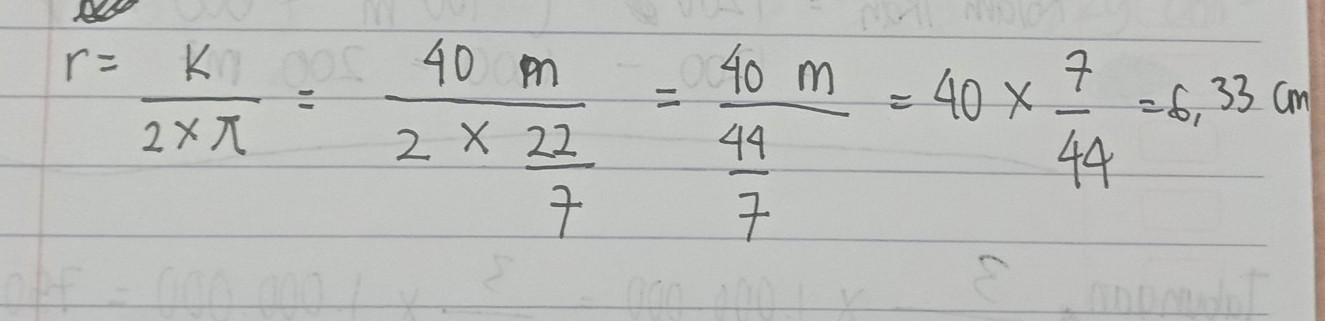 r = K / (2 × π) = 40 m / (2 × 22/7) = 40 m / (44/7) = 40 × 7/44 = 6,33 cm